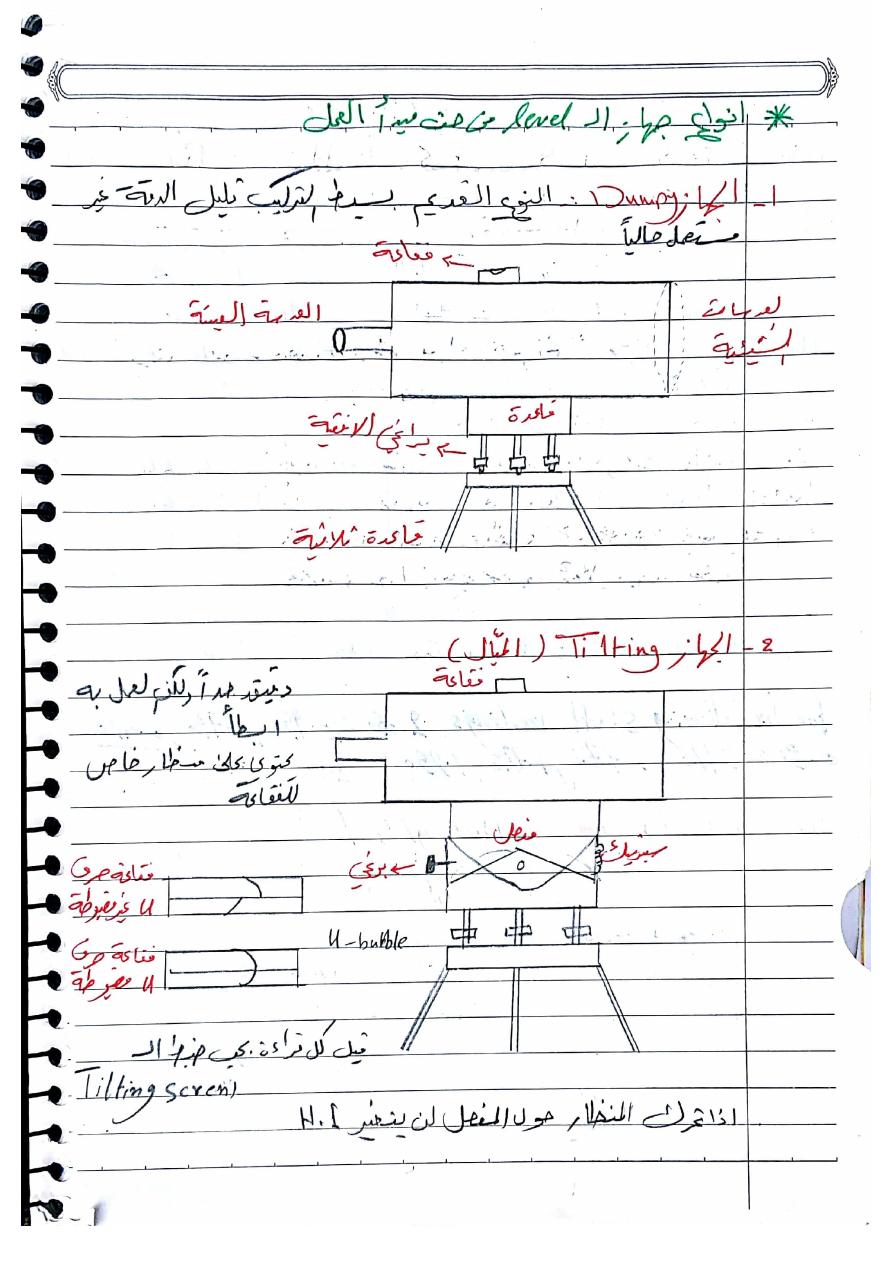 * انواع جهاز الـ level من حيث مبدأ العمل
1- الجهاز Dumpy : النوع القديم بسيط التركيب قليل الدقة غير
مستعمل حالياً
فقاعة
العدسة العينية
العدسات
الشيئية
قاعدة
براغي الافقية
قاعدة ثلاثية
2- الجهاز Tilting (الميّال)
فقاعة
دقيق جداً ولكن العمل به
ابطأ
يحتوي على منظار خاص
للفقاعة
مفصل
سبرنك
برغي
فقاعة حرف
U غير مضبوطة
U-bubble
فقاعة حرف
U مضبوطة
قبل كل قراءة يجب ضبط الـ
Tilting screw
اذا تحرك المنظار حول المفصل لن يتغير H.I